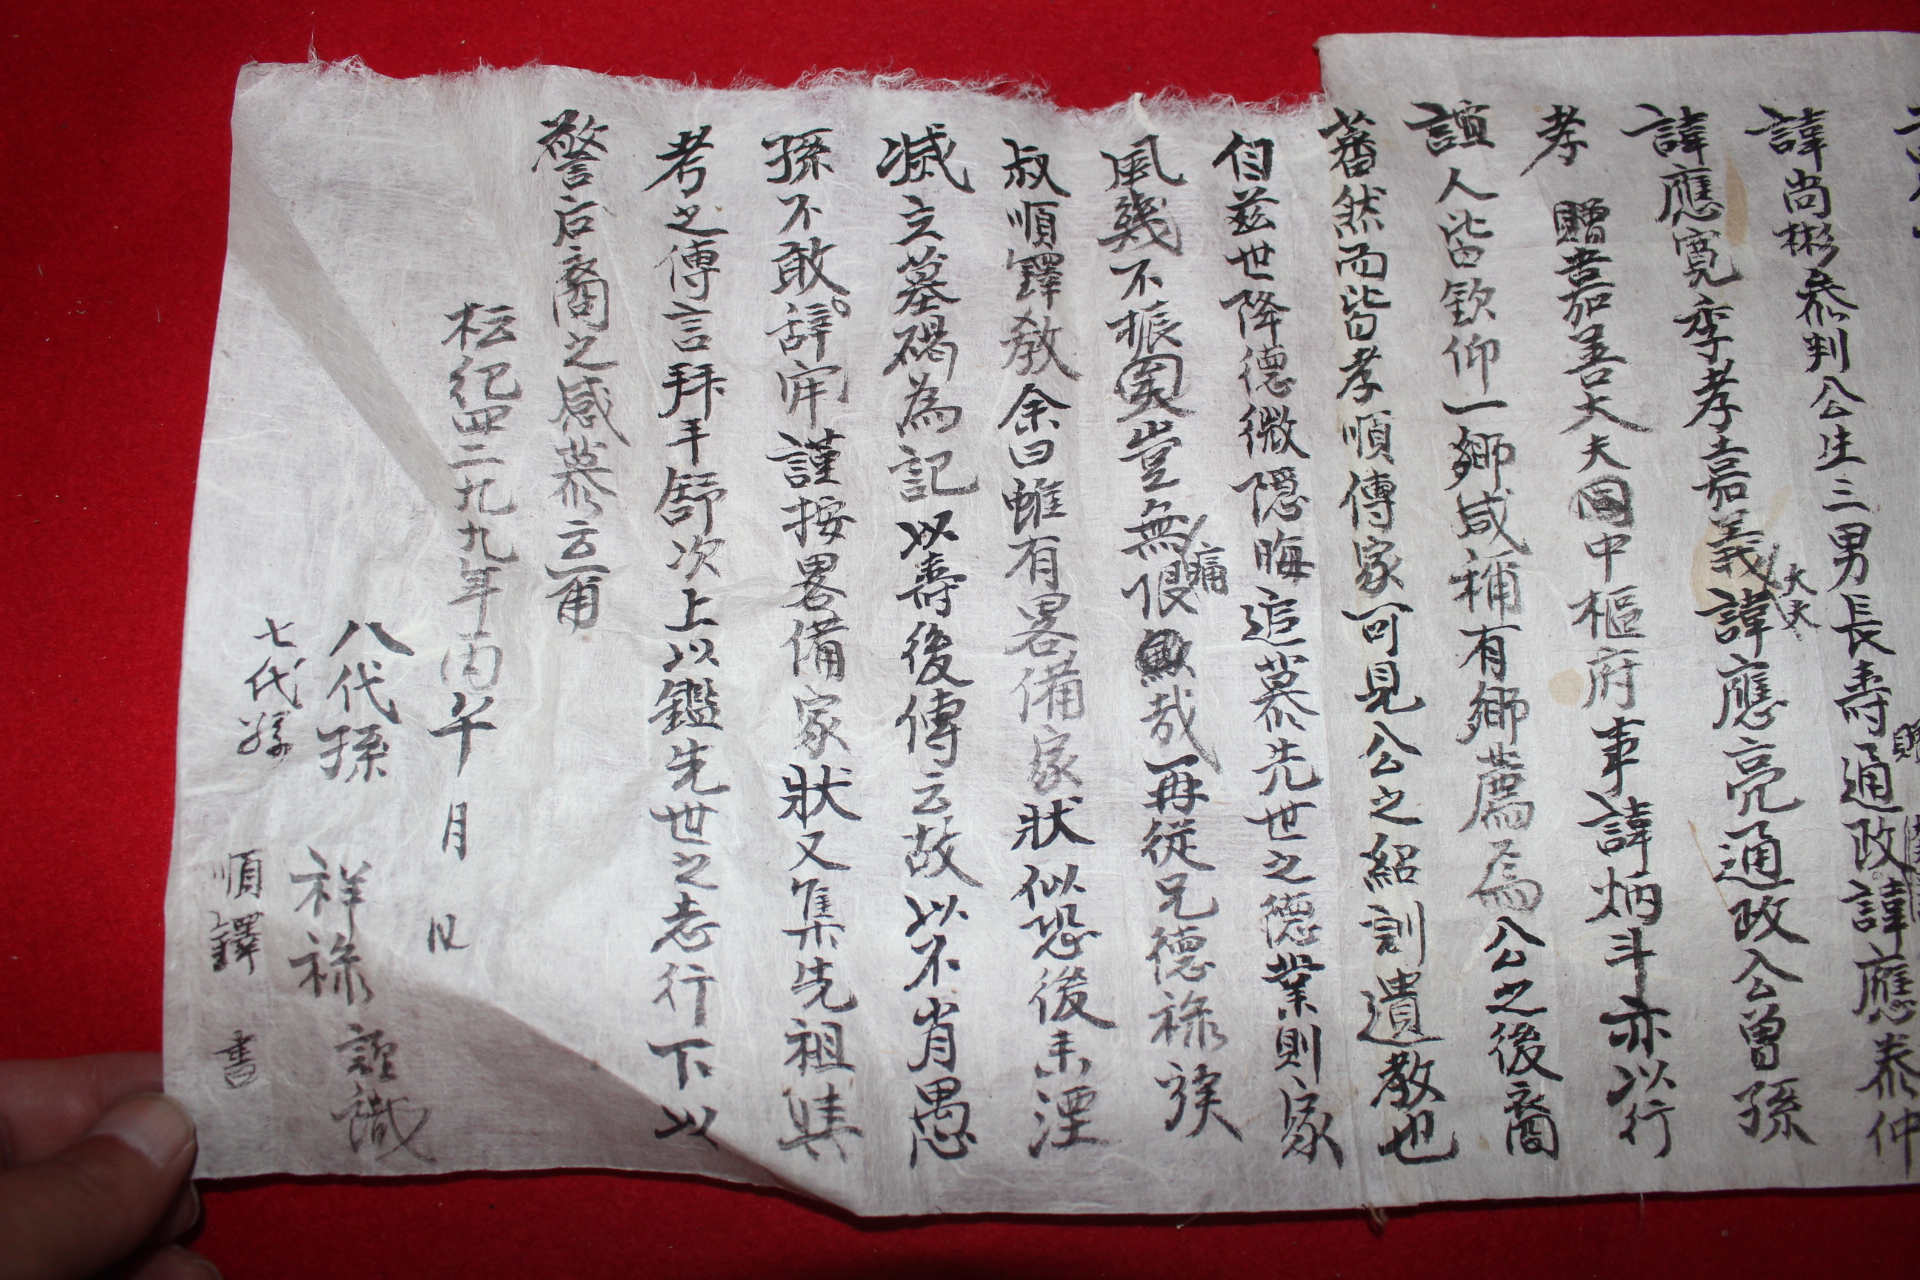 諱尚彬叅判公生三男長壽通政諱應泰仲
諱應寬季孝嘉義大夫諱應亮通政公曾孫
孝 贈嘉善大夫同中樞府事諱炳斗亦以行
誼人皆欽仰一鄕咸稱有鄕薦焉公之後裔
蕃然而皆孝順傳家可見公之紹訓遺敎也
自玆世降德微隱晦追慕先世之德業則家
風幾不振奚豈無痛恨哉再從兄德祿族
叔順鐸敎余曰雖有畧備家狀似恐後未湮
滅立墓碣為記以壽後傳云故以不肖愚
孫不敢辞牢謹按畧備家狀又集先祖與
考之傳言拜手舒次上以鑑先世之志行下以
警后裔之感慕云甫
松紀四二九九年丙午 月 日
八代孫 祥祿 謹識
七代孫 順鐸 書